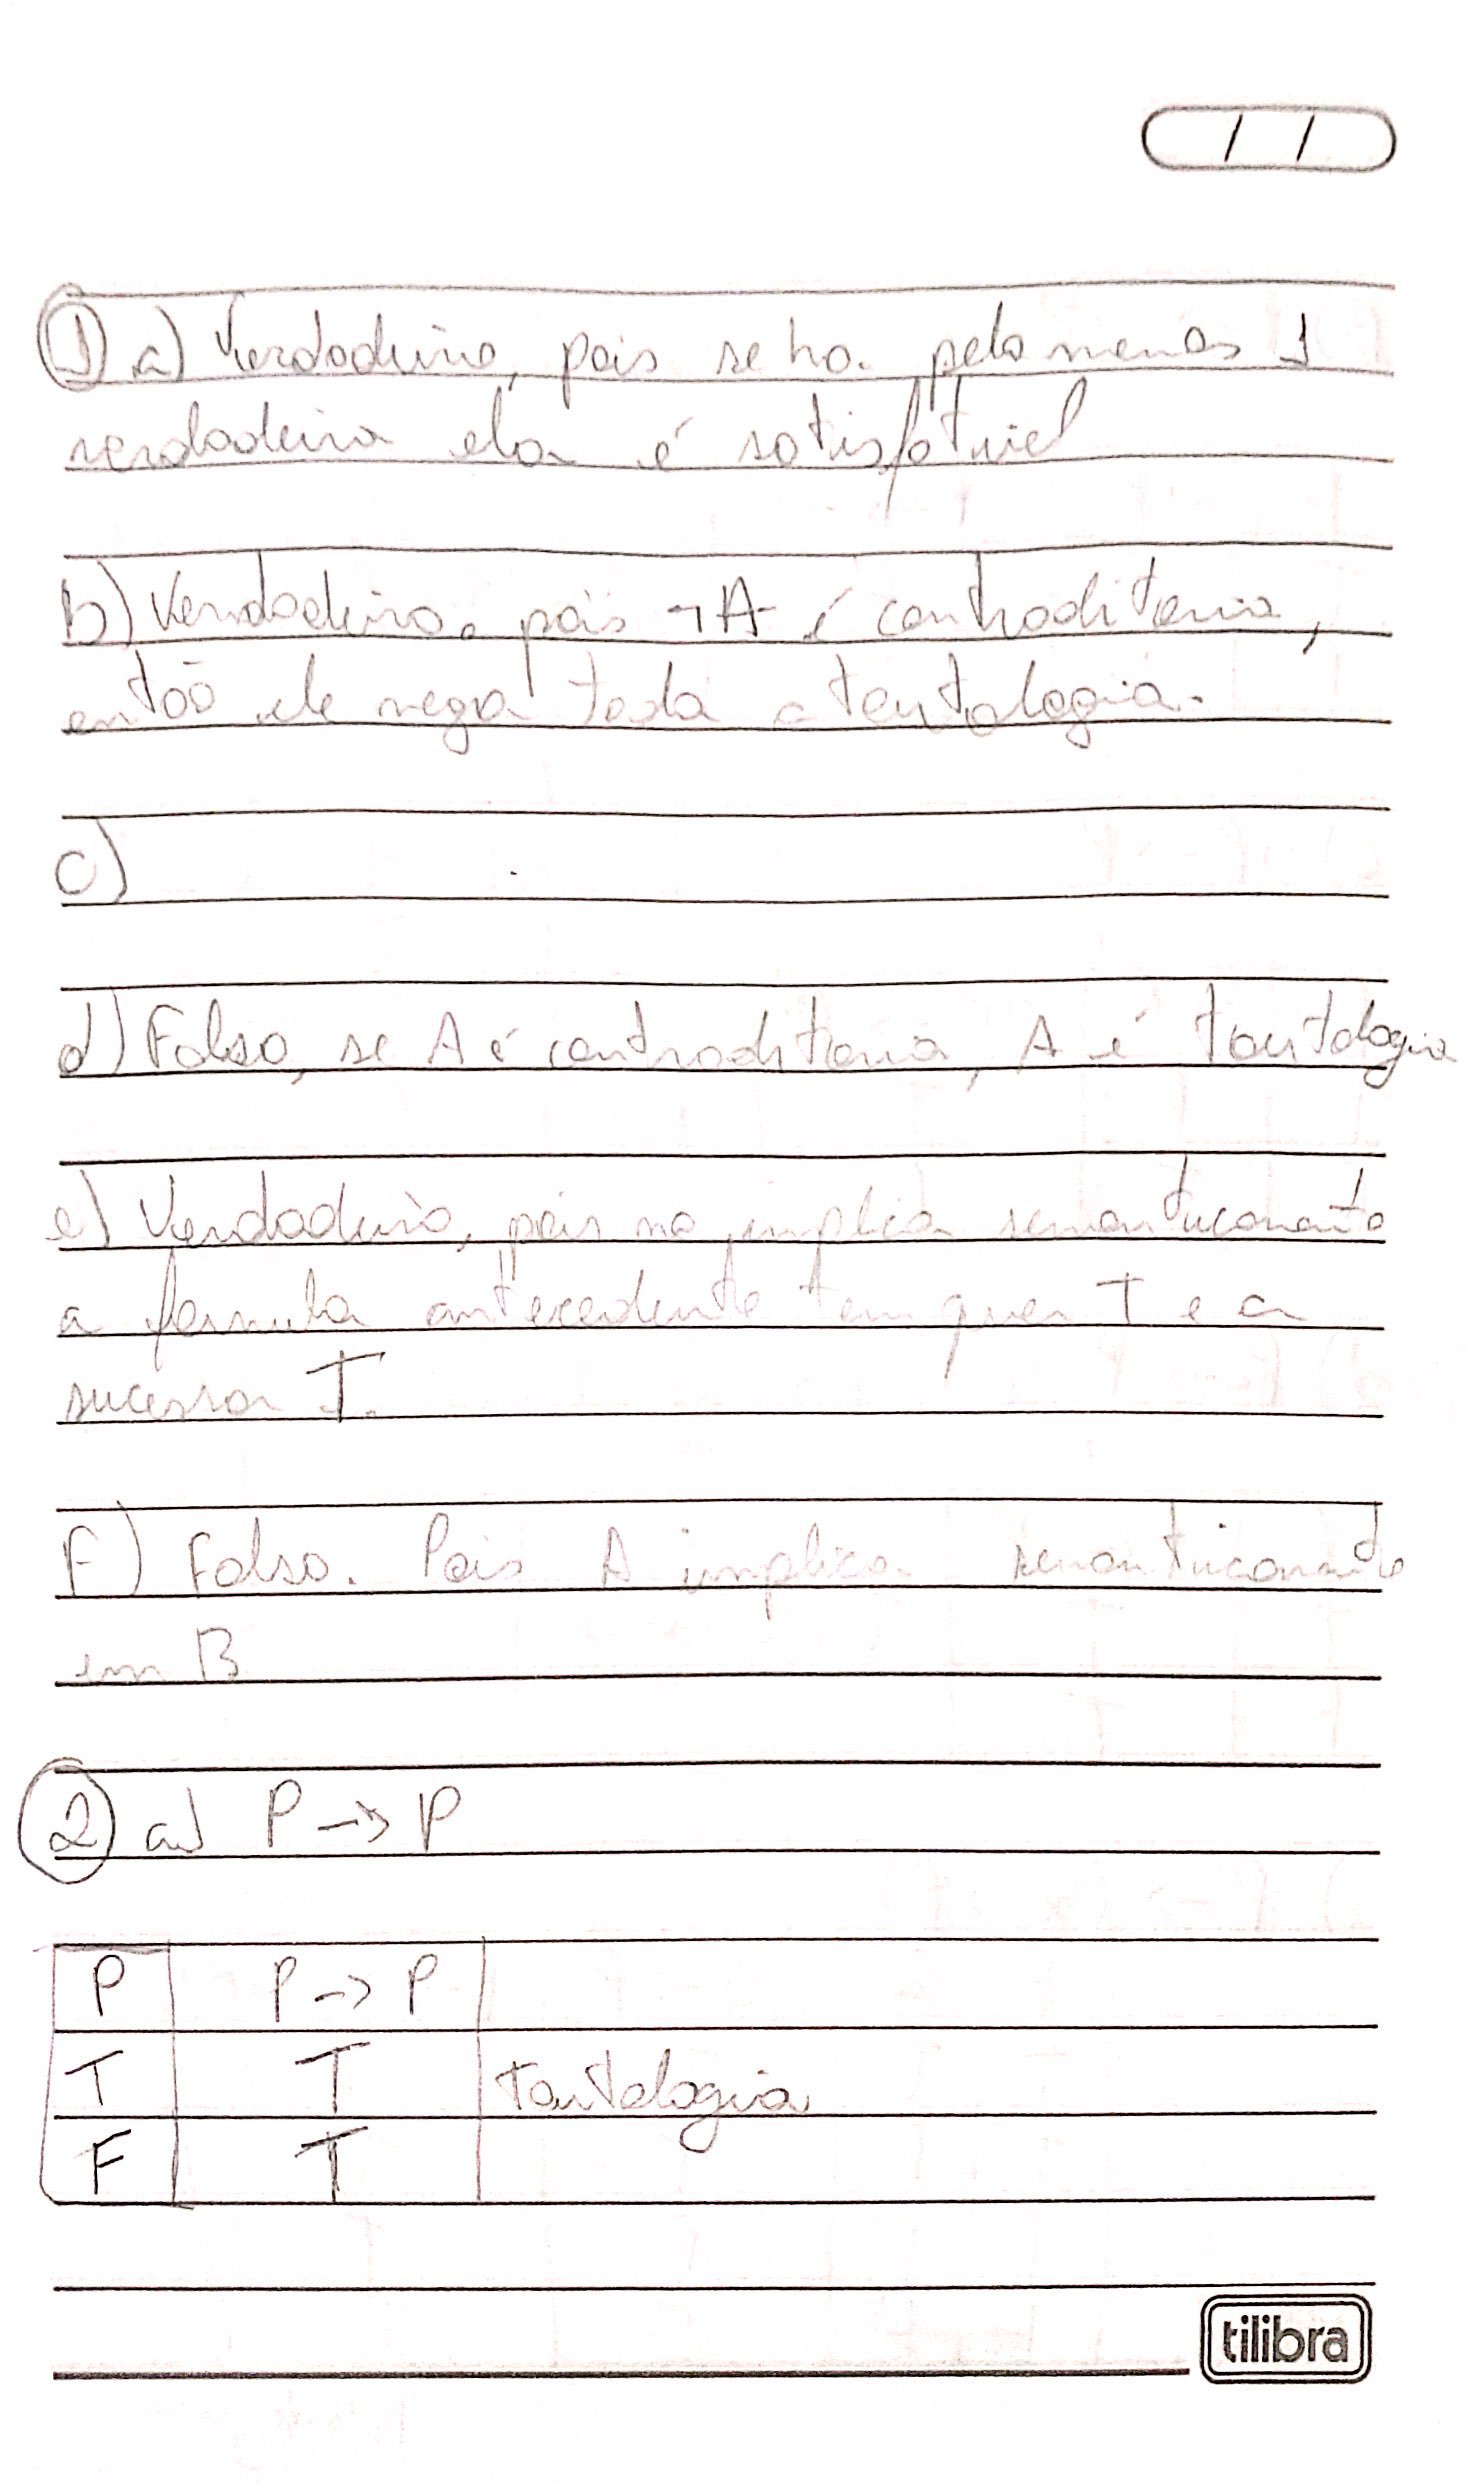 / /
1) a) Verdadeiro, pois se ha pelo menos 1
verdadeira ela é satisfatível
b) Verdadeiro. pois ¬A é contraditoria,
então ele nega toda a tautologia.
c)
d) Falso, se A é contraditoria, A é tautologia
e) Verdadeiro, pois na implica semanticamente
a formula antecedente tem que T e a
sucessor T.
F) Falso. Pois A implica semanticamente
em B
2) a) P → P
P P → P
T T tautologia
F T
tilibra